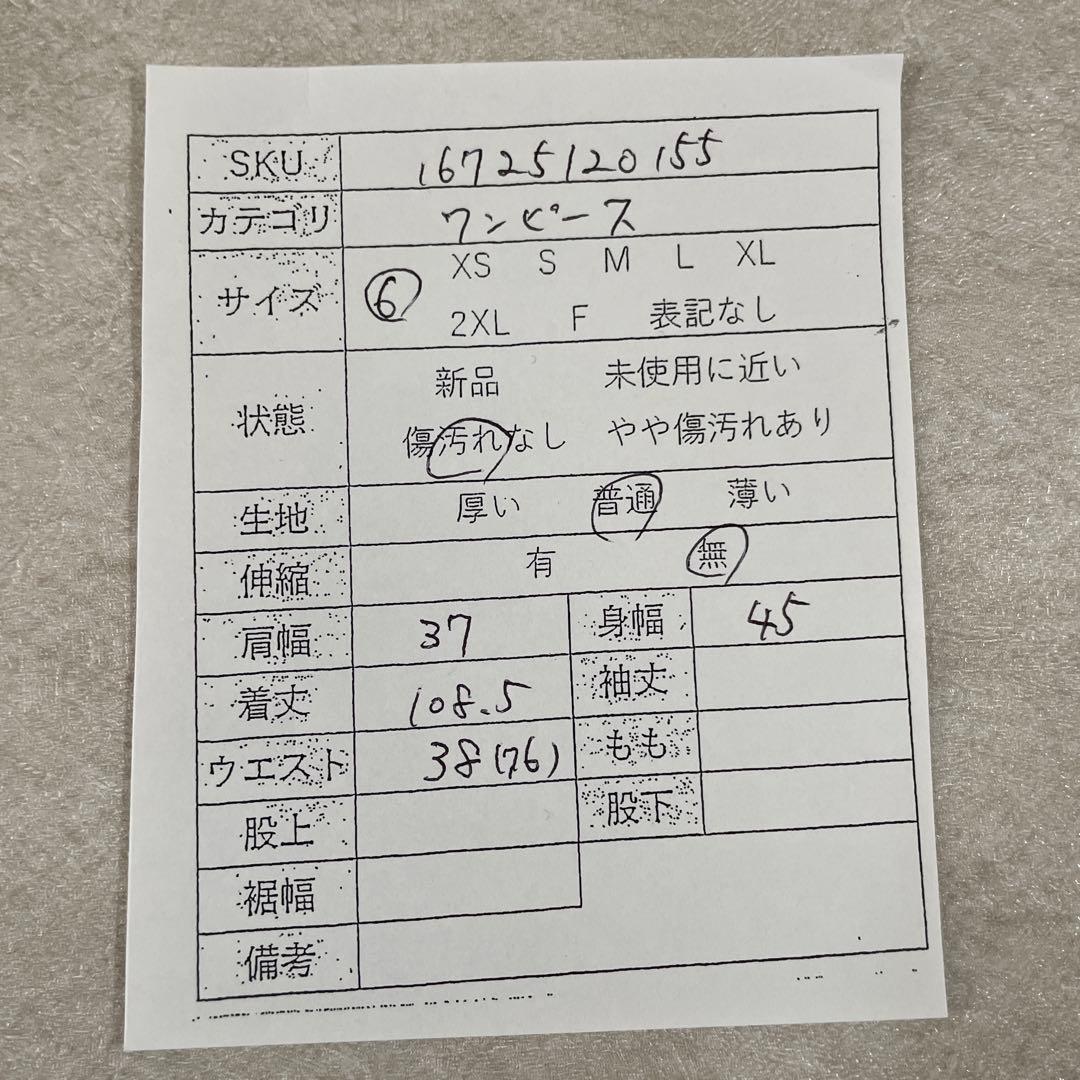 SKU 16725120155
カテゴリ ワンピース
サイズ ⑥ XS S M L XL
2XL F 表記なし
状態 新品 未使用に近い
傷汚れなし やや傷汚れあり
生地 厚い 普通 薄い
伸縮 有 無
肩幅 37 身幅 45
着丈 108.5 袖丈
ウエスト 38(76) もも
股上 股下
裾幅
備考